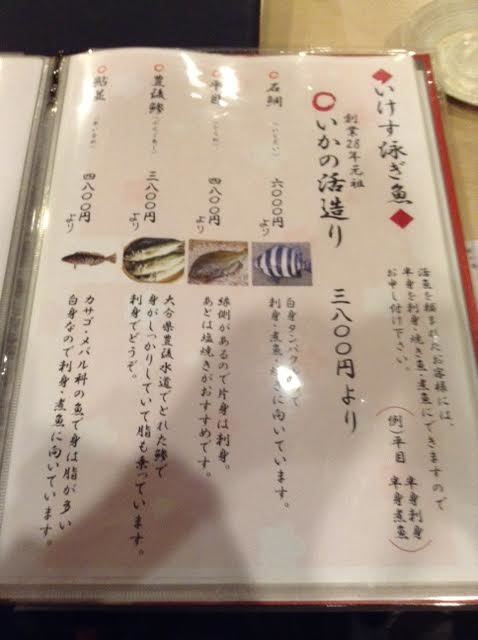 いけす泳ぎ魚
活魚を頼まれたお客様には、
半身を刺身・焼き魚・煮魚にできますので
お申し付け下さい。
(例)平目 半身刺身
半身煮魚
創業28年元祖
いかの活造り 三八〇〇円より
石鯛(いしだい) 六〇〇〇円より
白身タンパクで
刺身・煮魚・焼きに向いています。
平目(ひらめ) 四八〇〇円より
縁側があるので片身は刺身。
あとは塩焼きがおすすめです。
豊後鯵(ぶんごあじ) 三八〇〇円より
大分県豊後水道でとれた鯵で
身がしっかりしていて脂も乗っています。
刺身でどうぞ。
鮎並(あいなめ) 四八〇〇円より
カサゴ・メバル科の魚で身は脂が多い
白身なので刺身・煮魚に向いています。